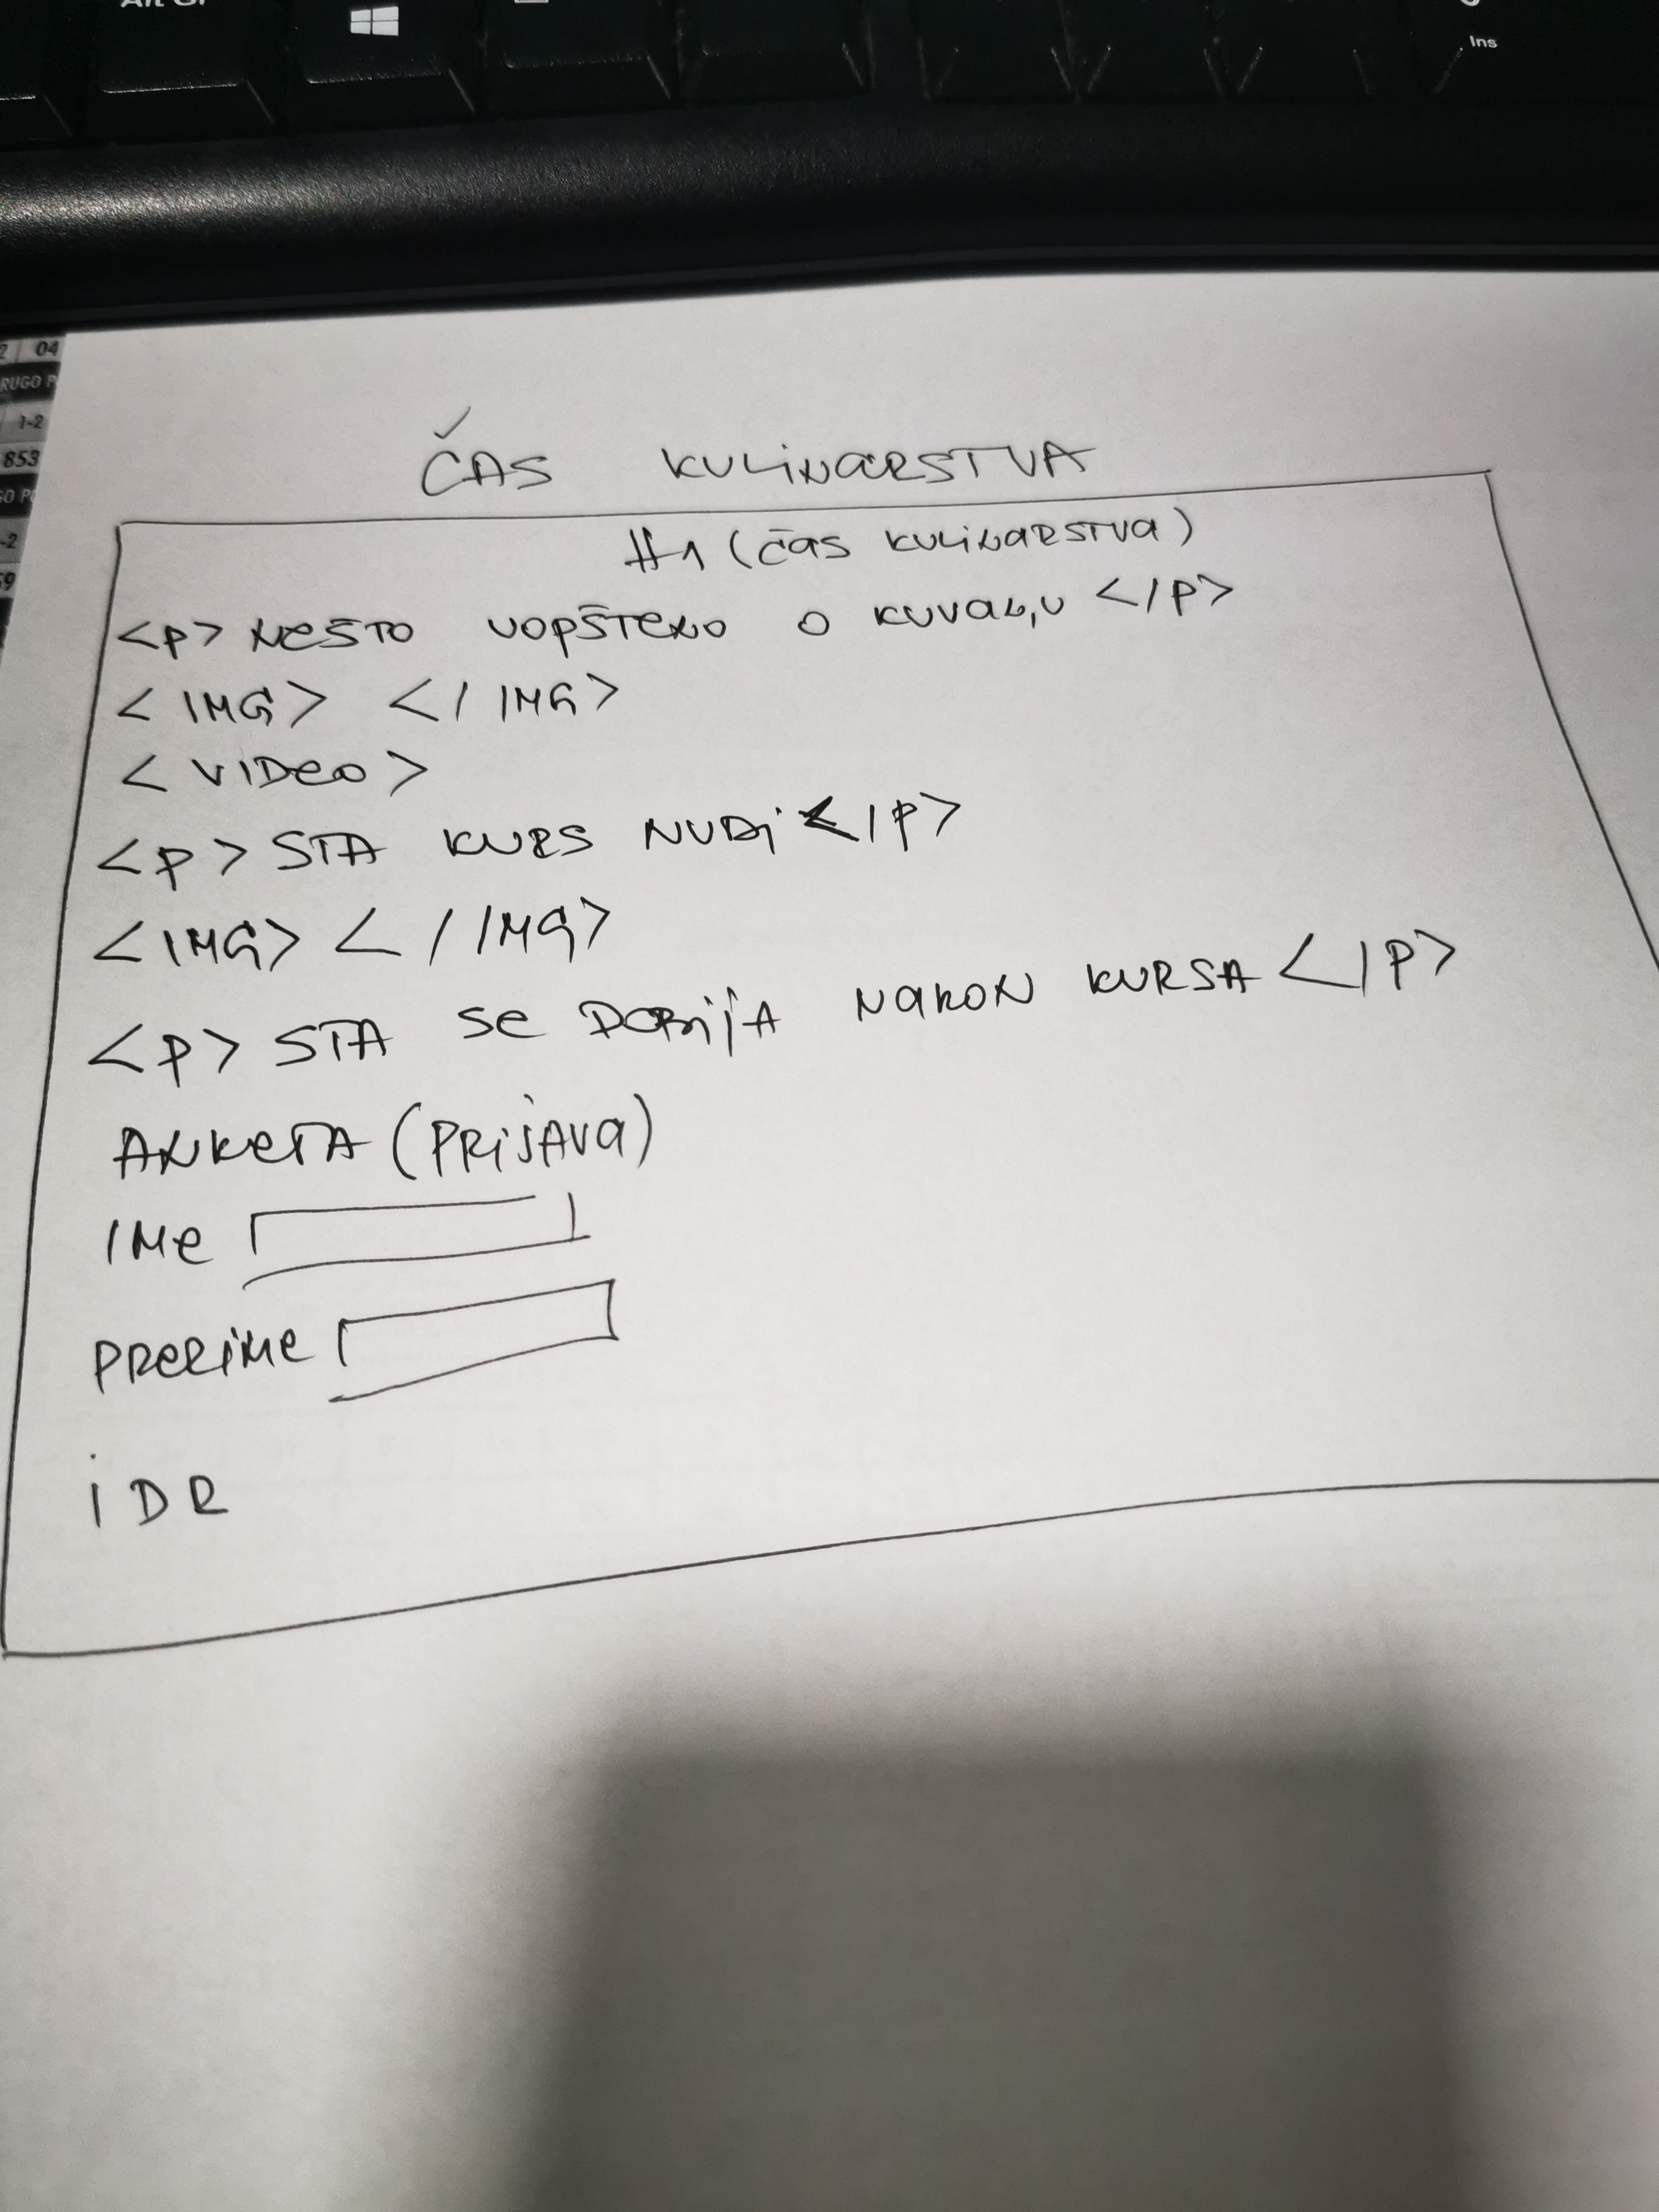 Alt Gr
Ins
2 04
RUGO P
1-2
853
GO PO
-2
59
ČAS KULINARSTVA
H1 (čas kulinarstva)
<P> NEŠTO UOPŠTENO O KUVANJU </P>
<IMG> </IMG>
<VIDEO>
<P> STA KURS NUDI </P>
<IMG> </IMG>
<P> STA SE DOBIJA NAKON KURSA </P>
ANKETA (PRIJAVA)
IME
PREZIME
IDR